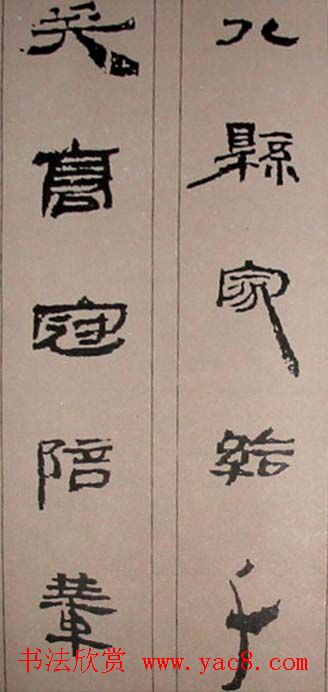 八縣家給千
兵高冠陪輦
书法欣赏 www.yac8.com